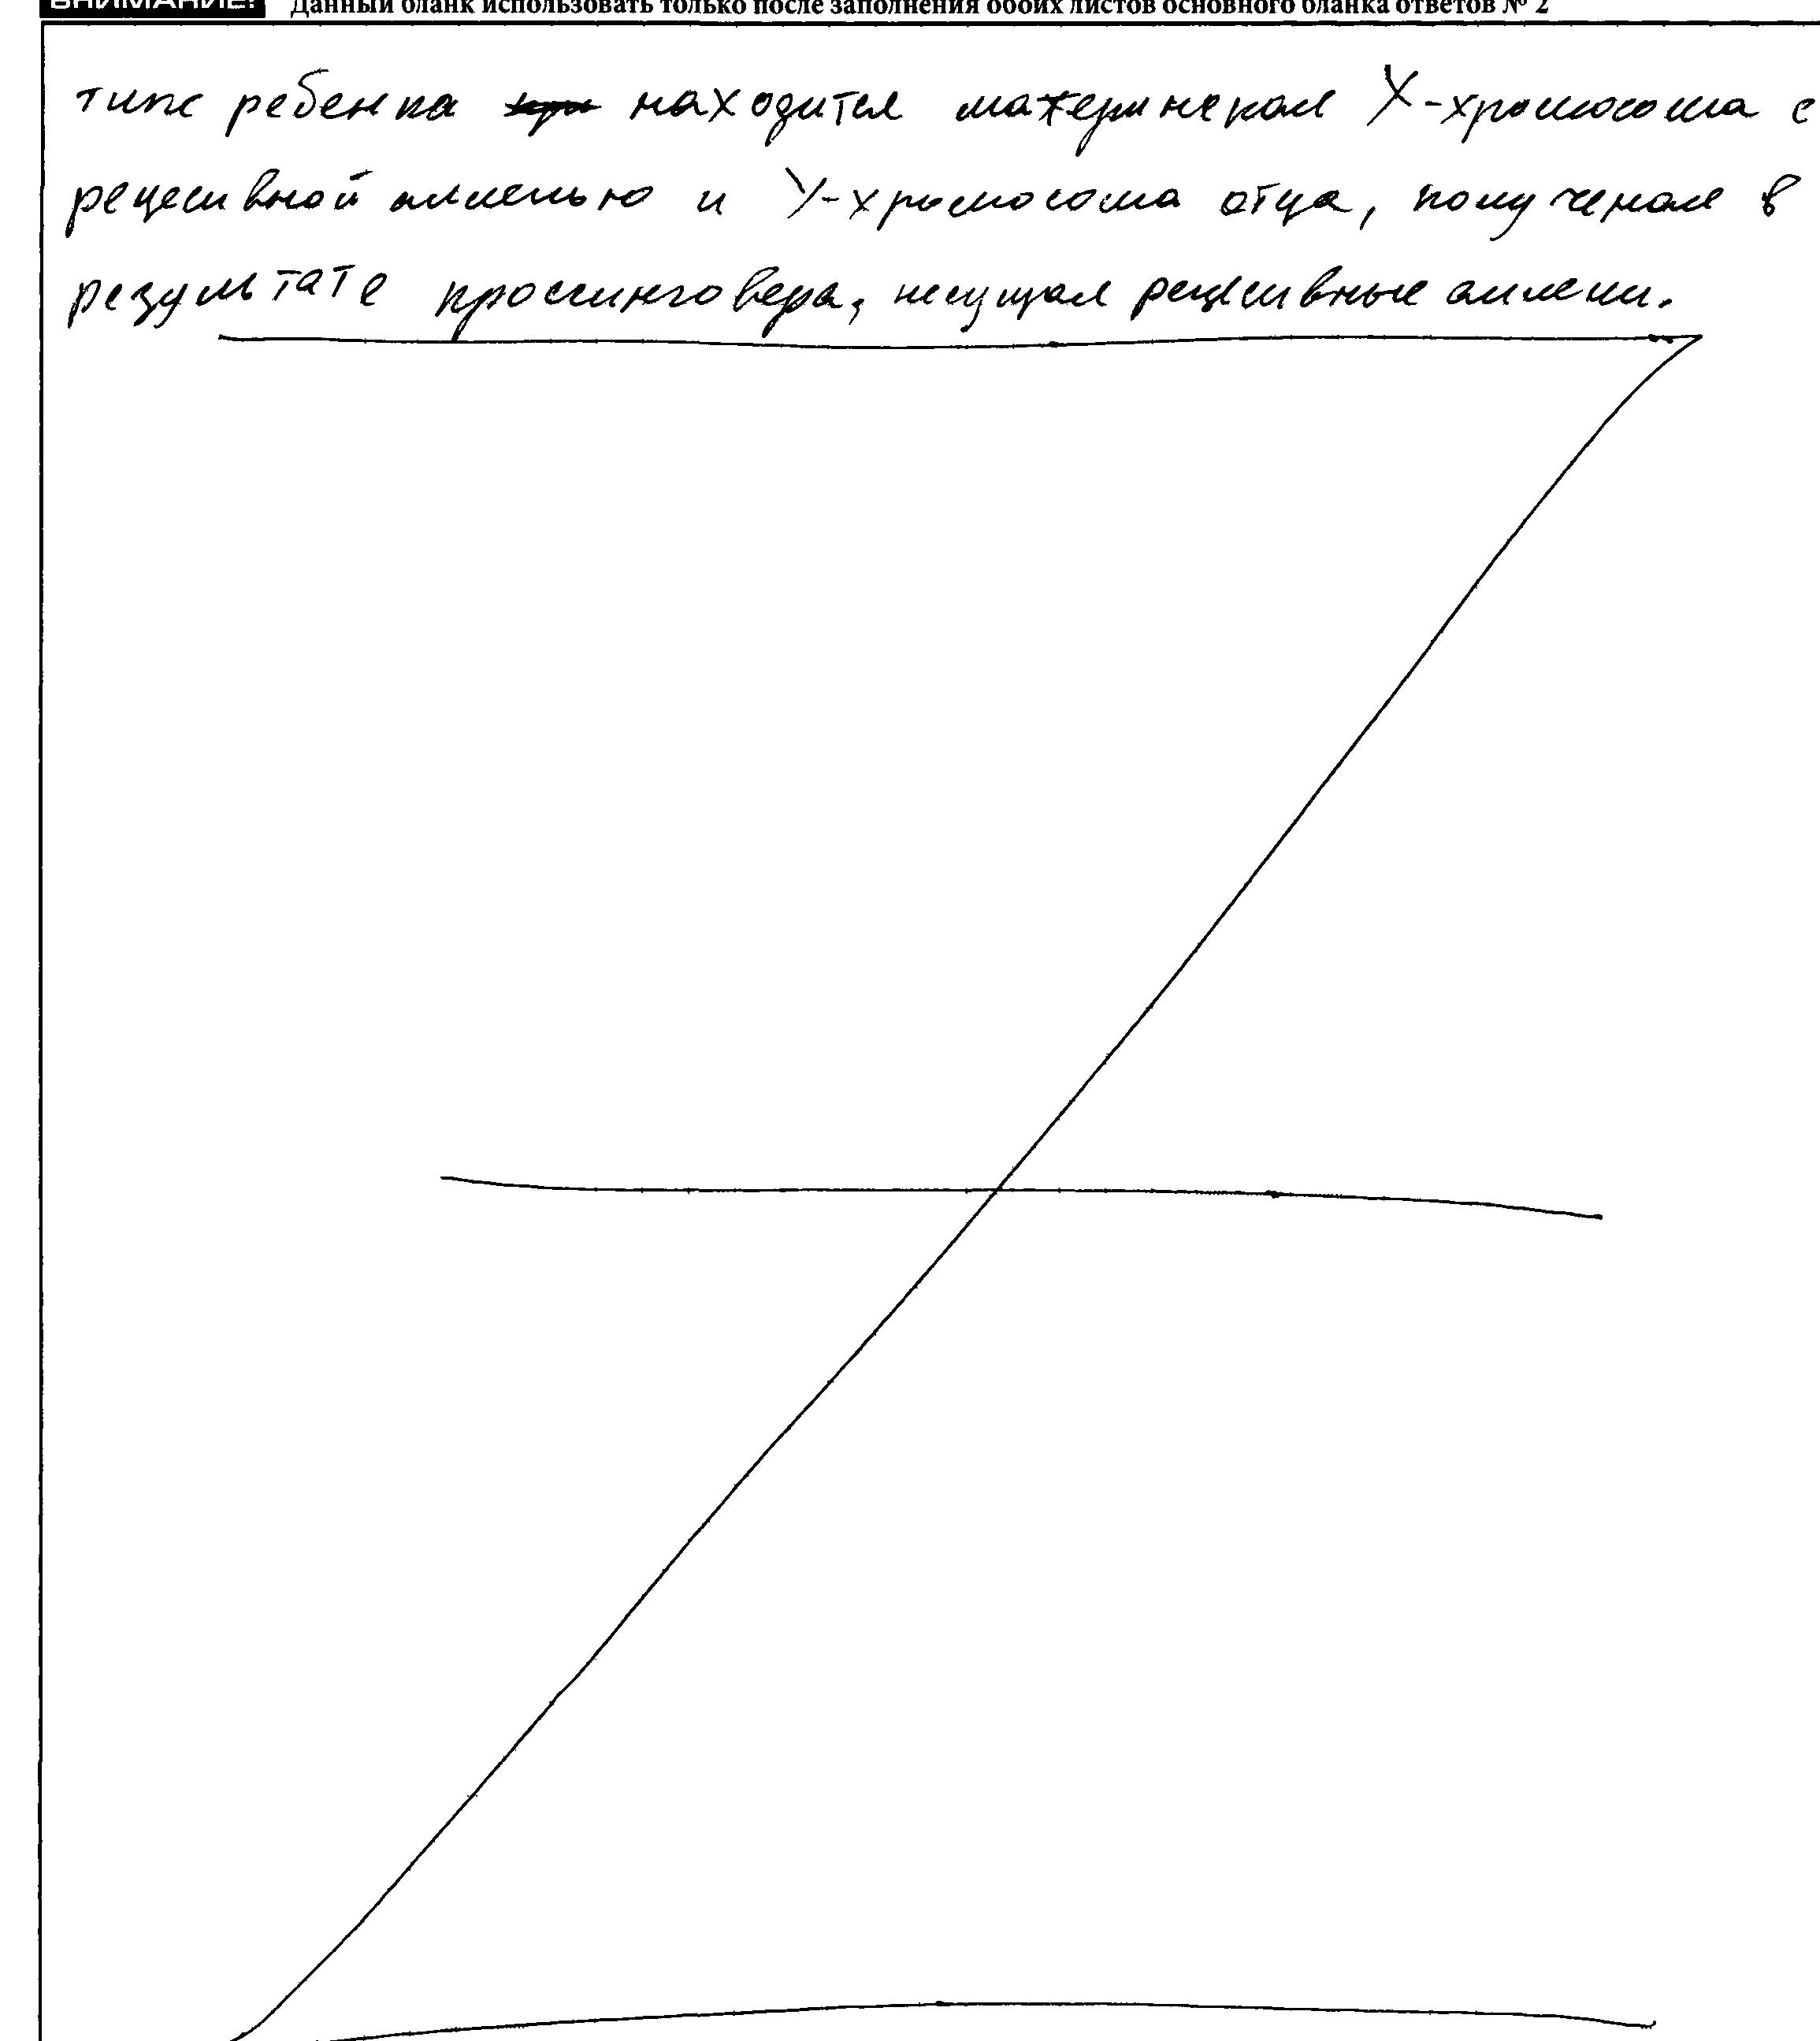 ВНИМАНИЕ! Данный бланк использовать только после заполнения обоих листов основного бланка ответов № 2
типе ребенка находится материнская Х-хромосома с
рецесивной аллелью и Y-хромосома отца, полученая в
результате кроссинговера, несущая рецесивные аллели.